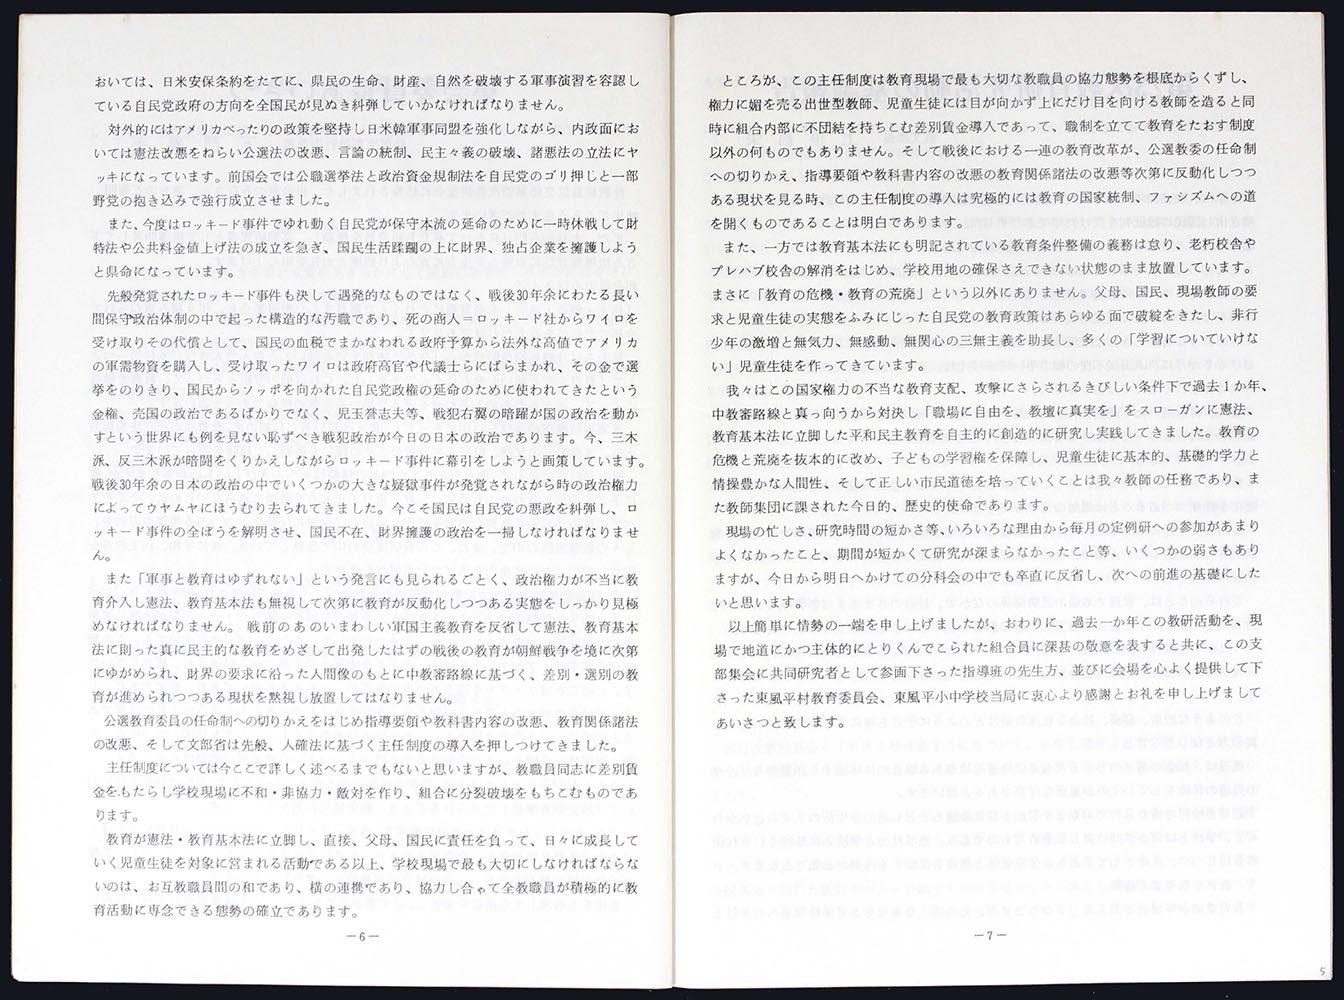 おいては、日米安保条約をたてに、県民の生命、財産、自然を破壊する軍事演習を容認し
ている自民党政府の方向を全国民が見ぬき糾弾していかなければなりません。
対外的にはアメリカべったりの政策を堅持し日米韓軍事同盟を強化しながら、内政面にお
いては憲法改悪をねらい公選法の改悪、言論の統制、民主々義の破壊、諸悪法の立法にヤ
ッキになっています。前国会では公職選挙法と政治資金規制法を自民党のゴリ押しと一部
野党の抱き込みで強行成立させました。
また、今度はロッキード事件でゆれ動く自民党が保守本流の延命のために一時休戦して財
特法や公共料金値上げ法の成立を急ぎ、国民生活蹂躙の上に財界、独占企業を擁護しよう
と県命になっています。
先般発覚されたロッキード事件も決して遇発的なものではなく、戦後30年余にわたる長い
間保守政治体制の中で起った構造的な汚職であり、死の商人＝ロッキード社からワイロを
受け取りその代償として、国民の血税でまかなわれる政府予算から法外な高値でアメリカ
の軍需物資を購入し、受け取ったワイロは政府高官や代議士らにばらまかれ、その金で選
挙をのりきり、国民からソッポを向かれた自民党政権の延命のために使われてきたという
金権、売国の政治であるばかりでなく、児玉誉志夫等、戦犯右翼の暗躍が国の政治を動か
すという世界にも例を見ない恥ずべき戦犯政治が今日の日本の政治であります。今、三木
派、反三木派が暗闘をくりかえしながらロッキード事件に幕引をしようと画策しています。
戦後30年余の日本の政治の中でいくつかの大きな疑獄事件が発覚されながら時の政治権力
によってウヤムヤにほうむり去られてきました。今こそ国民は自民党の悪政を糾弾し、ロ
ッキード事件の全ぼうを解明させ、国民不在、財界擁護の政治を一掃しなければなりませ
ん。
また「軍事と教育はゆずれない」という発言にも見られるごとく、政治権力が不当に教
育介入し憲法、教育基本法も無視して次第に教育が反動化しつつある実態をしっかり見極
めなければなりません。 戦前のあのいまわしい軍国主義教育を反省して憲法、教育基本
法に則った真に民主的な教育をめざして出発したはずの戦後の教育が朝鮮戦争を境に次第
にゆがめられ、財界の要求に沿った人間像のもとに中教審路線に基づく、差別・選別の教
育が進められつつある現状を黙視し放置してはなりません。
公選教育委員の任命制への切りかえをはじめ指導要領や教科書内容の改悪、教育関係諸法
の改悪、そして文部省は先般、人確法に基づく主任制度の導入を押しつけてきました。
主任制度については今ここで詳しく述べるまでもないと思いますが、教職員同志に差別賃
金をもたらし学校現場に不和・非協力・敵対を作り、組合に分裂破壊をもちこむものであ
ります。
教育が憲法・教育基本法に立脚し、直接、父母、国民に責任を負って、日々に成長して
いく児童生徒を対象に営まれる活動である以上、学校現場で最も大切にしなければならな
いのは、お互教職員間の和であり、横の連携であり、協力し合ゃて全教職員が積極的に教
育活動に専念できる態勢の確立であります。
－6－
ところが、この主任制度は教育現場で最も大切な教職員の協力態勢を根底からくずし、
権力に媚を売る出世型教師、児童生徒には目が向かず上にだけ目を向ける教師を造ると同
時に組合内部に不団結を持ちこむ差別賃金導入であって、職制を立てて教育をたおす制度
以外の何ものでもありません。そして戦後における一連の教育改革が、公選教委の任命制
への切りかえ、指導要領や教科書内容の改悪の教育関係諸法の改悪等次第に反動化しつつ
ある現状を見る時、この主任制度の導入は究極的には教育の国家統制、ファシズムへの道
を開くものであることは明白であります。
また、一方では教育基本法にも明記されている教育条件整備の義務は怠り、老朽校舎や
プレハブ校舎の解消をはじめ、学校用地の確保さえできない状態のまま放置しています。
まさに「教育の危機・教育の荒廃」という以外にありません。父母、国民、現場教師の要
求と児童生徒の実態をふみにじった自民党の教育政策はあらゆる面で破綻をきたし、非行
少年の激増と無気力、無感動、無関心の三無主義を助長し、多くの「学習についていけな
い」児童生徒を作ってきています。
我々はこの国家権力の不当な教育支配、攻撃にさらされるきびしい条件下で過去1か年、
中教審路線と真っ向うから対決し「職場に自由を、教壇に真実を」をスローガンに憲法、
教育基本法に立脚した平和民主教育を自主的に創造的に研究し実践してきました。教育の
危機と荒廃を抜本的に改め、子どもの学習権を保障し、児童生徒に基本的、基礎的学力と
情操豊かな人間性、そして正しい市民道徳を培っていくことは我々教師の任務であり、ま
た教師集団に課された今日的、歴史的使命であります。
現場の忙しさ、研究時間の短かさ等、いろいろな理由から毎月の定例研への参加があまり
よくなかったこと、期間が短かくて研究が深まらなかったこと等、いくつかの弱さもあり
ますが、今日から明日へかけての分科会の中でも卒直に反省し、次への前進の基礎にした
いと思います。
以上簡単に情勢の一端を申し上げましたが、おわりに、過去一か年この教研活動を、現
場で地道にかつ主体的にとりくんでこられた組合員に深甚の敬意を表すると共に、この支
部集会に共同研究者として参画下さった指導班の先生方、並びに会場を心よく提供して下
さった東風平村教育委員会、東風平小中学校当局に衷心より感謝とお礼を申し上げまして
あいさつと致します。
－7－
5